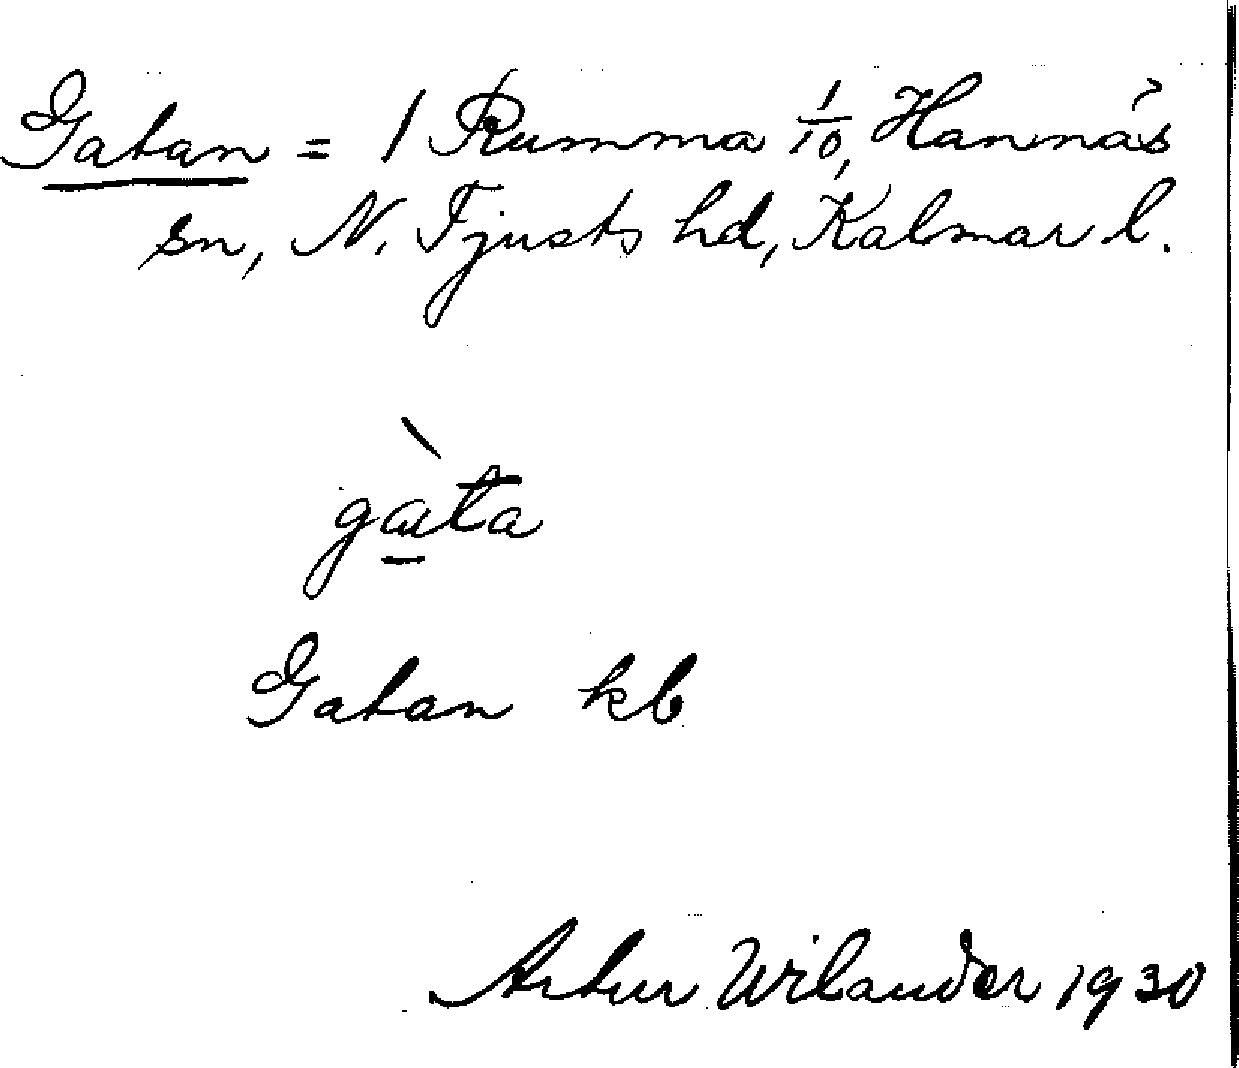 Gatan = 1 Rumma 1/10, Hannäs
sn, N. Tjusts hd, Kalmar l.
gàta
Gatan kb
Artur Wilander 1930